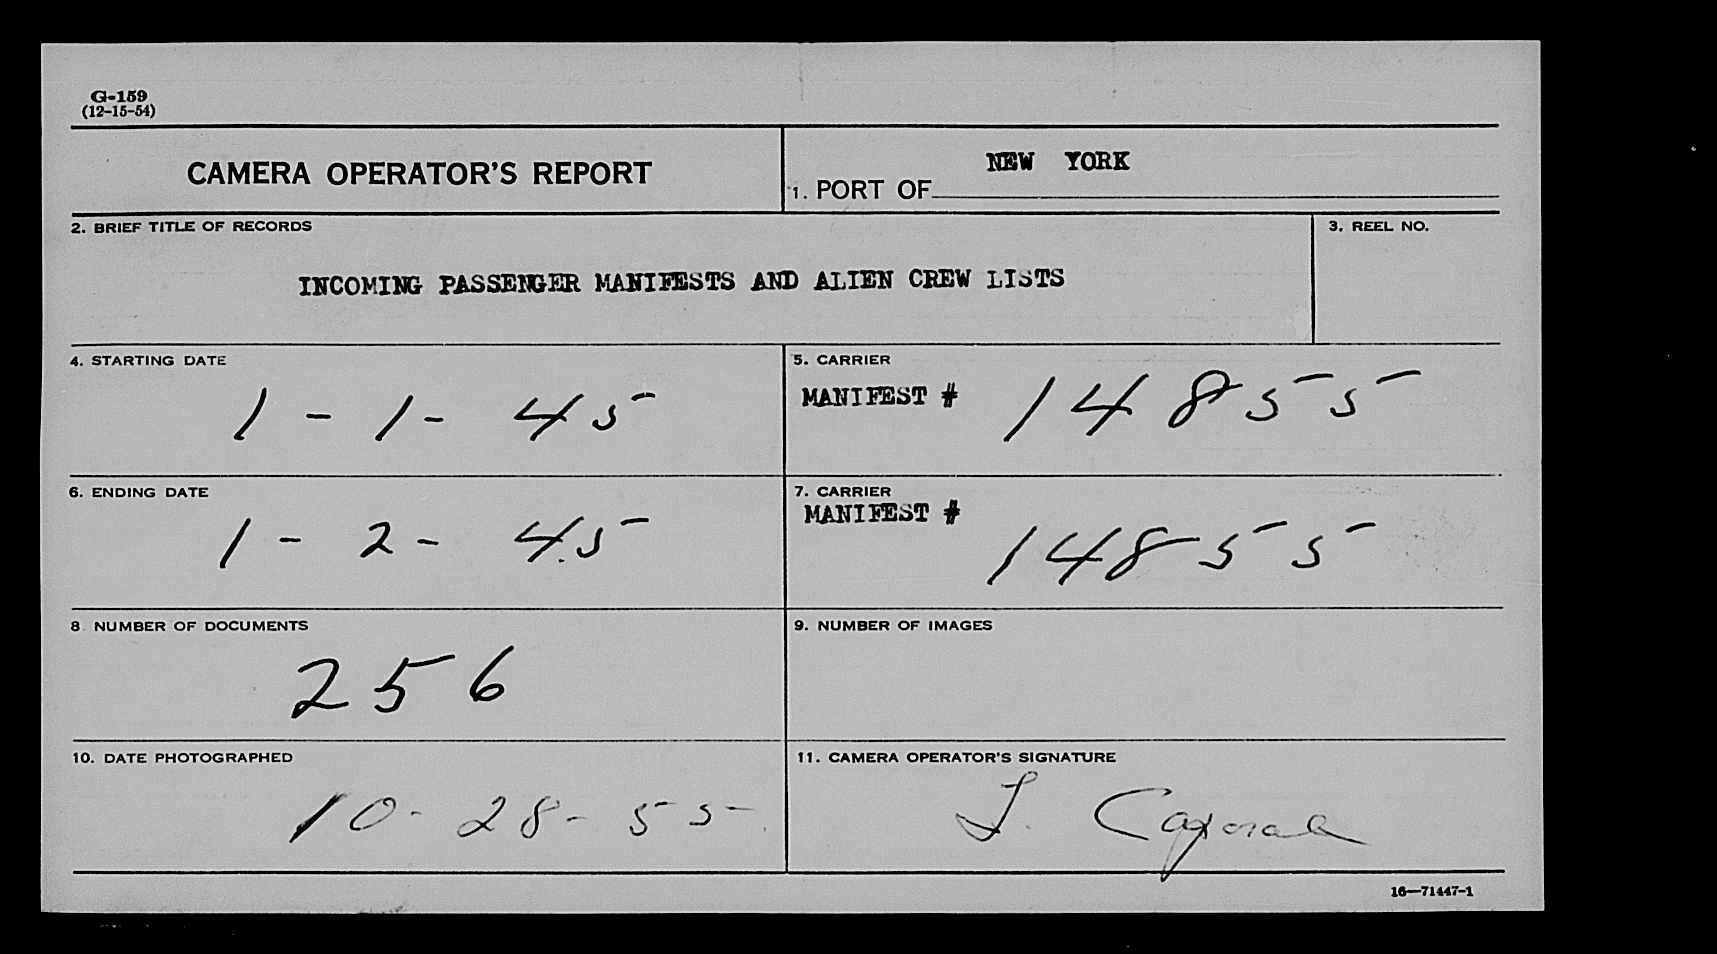 G-159
(12-15-54)
CAMERA OPERATOR'S REPORT
1. PORT OF NEW YORK
2. BRIEF TITLE OF RECORDS
INCOMING PASSENGER MANIFESTS AND ALIEN CREW LISTS
3. REEL NO.
4. STARTING DATE
1 - 1 - 45
5. CARRIER
MANIFEST # 14855
6. ENDING DATE
1 - 2 - 45
7. CARRIER
MANIFEST # 14855
8 NUMBER OF DOCUMENTS
256
9. NUMBER OF IMAGES
10. DATE PHOTOGRAPHED
10-28-55
11. CAMERA OPERATOR'S SIGNATURE
16—71447-1